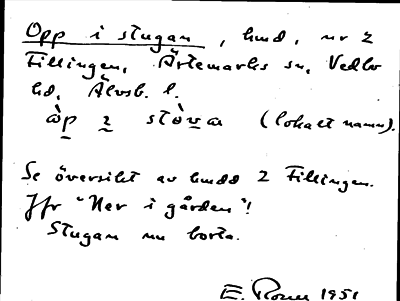 Opp i stugan, hmd, nr 2
Fillingen, Ärtemarks sn, Vedbo
hd, Älvsb. l.
òp ɩ stòvɑ (lokalt namn).
Se översikt av hmdd 2 Fillingen.
Jfr "Ner i gården"!
Stugan nu borta.
E. Rosell 1951